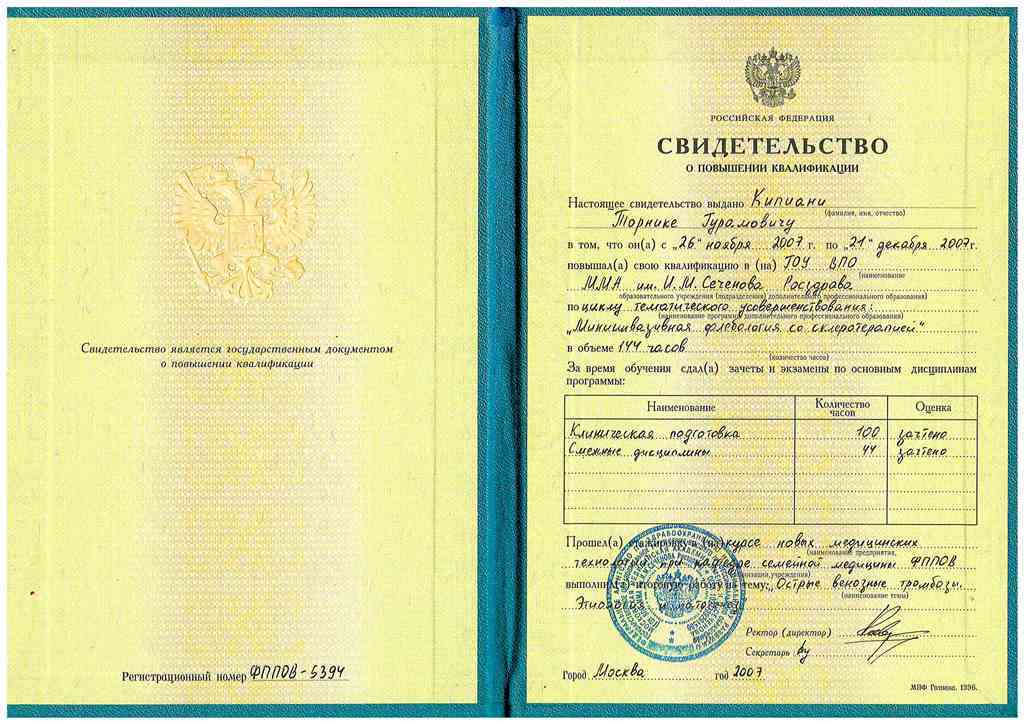 Свидетельство является государственным документом
о повышении квалификации
Регистрационный номер ФППОВ-5394
РОССИЙСКАЯ ФЕДЕРАЦИЯ
СВИДЕТЕЛЬСТВО
О ПОВЫШЕНИИ КВАЛИФИКАЦИИ
Настоящее свидетельство выдано Кипиани
(фамилия, имя, отчество)
Торнике Гурамовичу
в том, что он(а) с „26" ноября 2007 г. по „21" декабря 2007г.
повышал(а) свою квалификацию в (на) ГОУ ВПО
(наименование
ММА им. И.М. Сеченова Росздрава
образовательного учреждения (подразделения) дополнительного профессионального образования)
по циклу тематического усовершенствования:
(наименование программы дополнительного профессионального образования)
„Миниинвазивная флебология со склеротерапией"
в объеме 144 часов
(количество часов)
За время обучения сдал(а) зачеты и экзамены по основным дисциплинам
программы:
Наименование Количество часов Оценка
Клиническая подготовка 100 зачтено
Смежные дисциплины 44 зачтено
Прошел(а) стажировку в (на) курсе новых медицинских
(наименование предприятия,
технологий при кафедре семейной медицины ФППОВ
организации, учреждения)
выполнил(а) итоговую работу на тему: „Острые венозные тромбозы.
(наименование темы)
Этиология и патогенез
Ректор (директор)
Секретарь
Город Москва год 2007
МПФ Гознака. 1996.